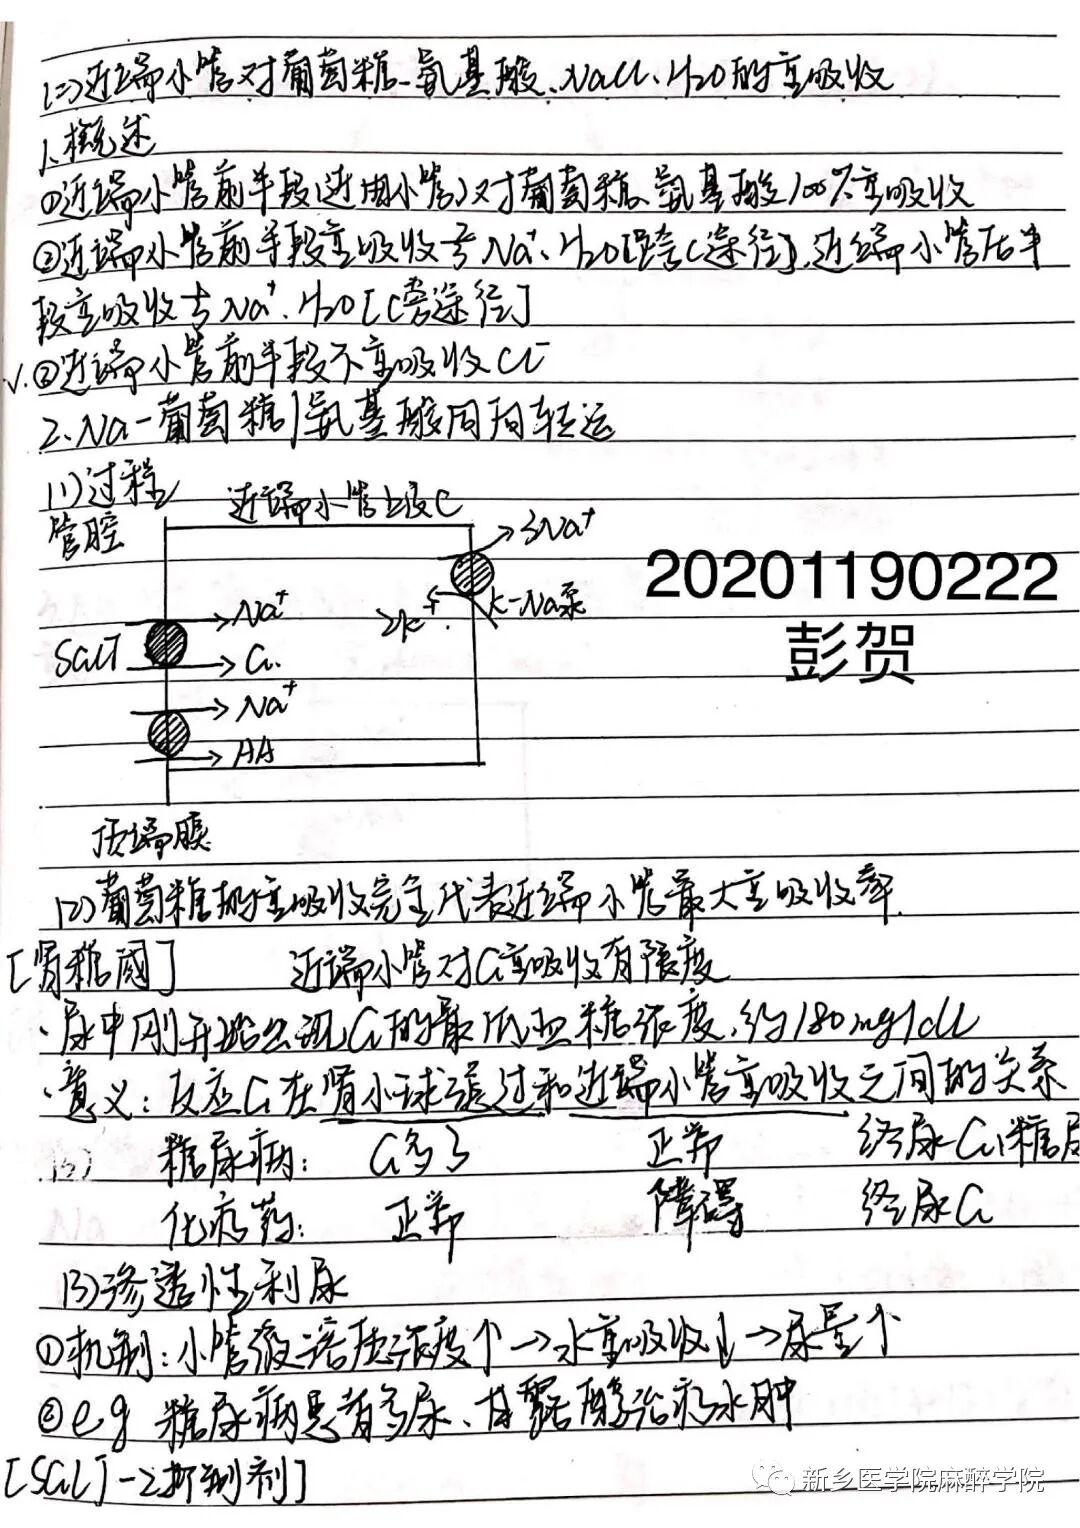 (二)近端小管对葡萄糖、氨基酸、NaCl、H2O的重吸收
1、概述
①近端小管前半段(近曲小管)对葡萄糖、氨基酸100%重吸收
②近端小管前半段重吸收Na+、H2O[跨C途径],近端小管后半
段重吸收Na+、H2O[C旁途径]
√.③近端小管前半段不重吸收Cl-
2、Na-葡萄糖/氨基酸同向转运
(1)过程
近端小管上皮C
管腔
3Na+
20201190222
K-Na泵
2K+
Na+
彭贺
SGLT
G.
Na+
AA
顶端膜
(2)葡萄糖的重吸收完全代表近端小管最大重吸收率.
[肾糖阈] 近端小管对G重吸收有限度
·尿中刚开始出现G的最低血糖浓度,约180mg/dl
·意义:反应G在肾小球滤过和近端小管重吸收之间的关系
糖尿病: G多了 正常 终尿G(糖尿
正常 障碍 终尿G
(3)渗透性利尿
①机制:小管液溶质浓度↑→水重吸收↓→尿量↑
②eg 糖尿病患者多尿、甘露醇治疗水肿
[SGLT-2抑制剂]
新乡医学院麻醉学院